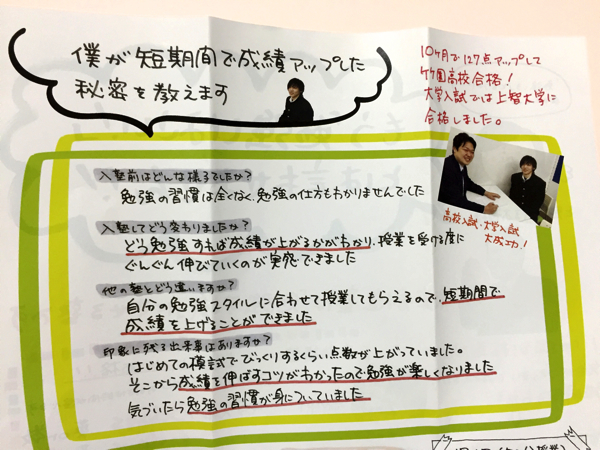 僕が短期間で成績アップした
秘密を教えます
10ヶ月で127点アップして
竹園高校合格!
大学入試では上智大学に
合格しました。
高校入試・大学入試
大成功!
入塾前はどんな様子でしたか?
勉強の習慣は全くなく、勉強の仕方もわかりませんでした
入塾してどう変わりましたか?
どう勉強すれば成績が上がるかがわかり、授業を受ける度に
ぐんぐん伸びていくのが実感できました
他の塾とどう違いますか?
自分の勉強スタイルに合わせて授業してもらえるので、短期間で
成績を上げることができました
印象に残る出来事はありますか?
はじめての模試でびっくりするくらい点数が上がっていました。
そこから成績を伸ばすコツがわかったので勉強が楽しくなりました
気づいたら勉強の習慣が身についていました